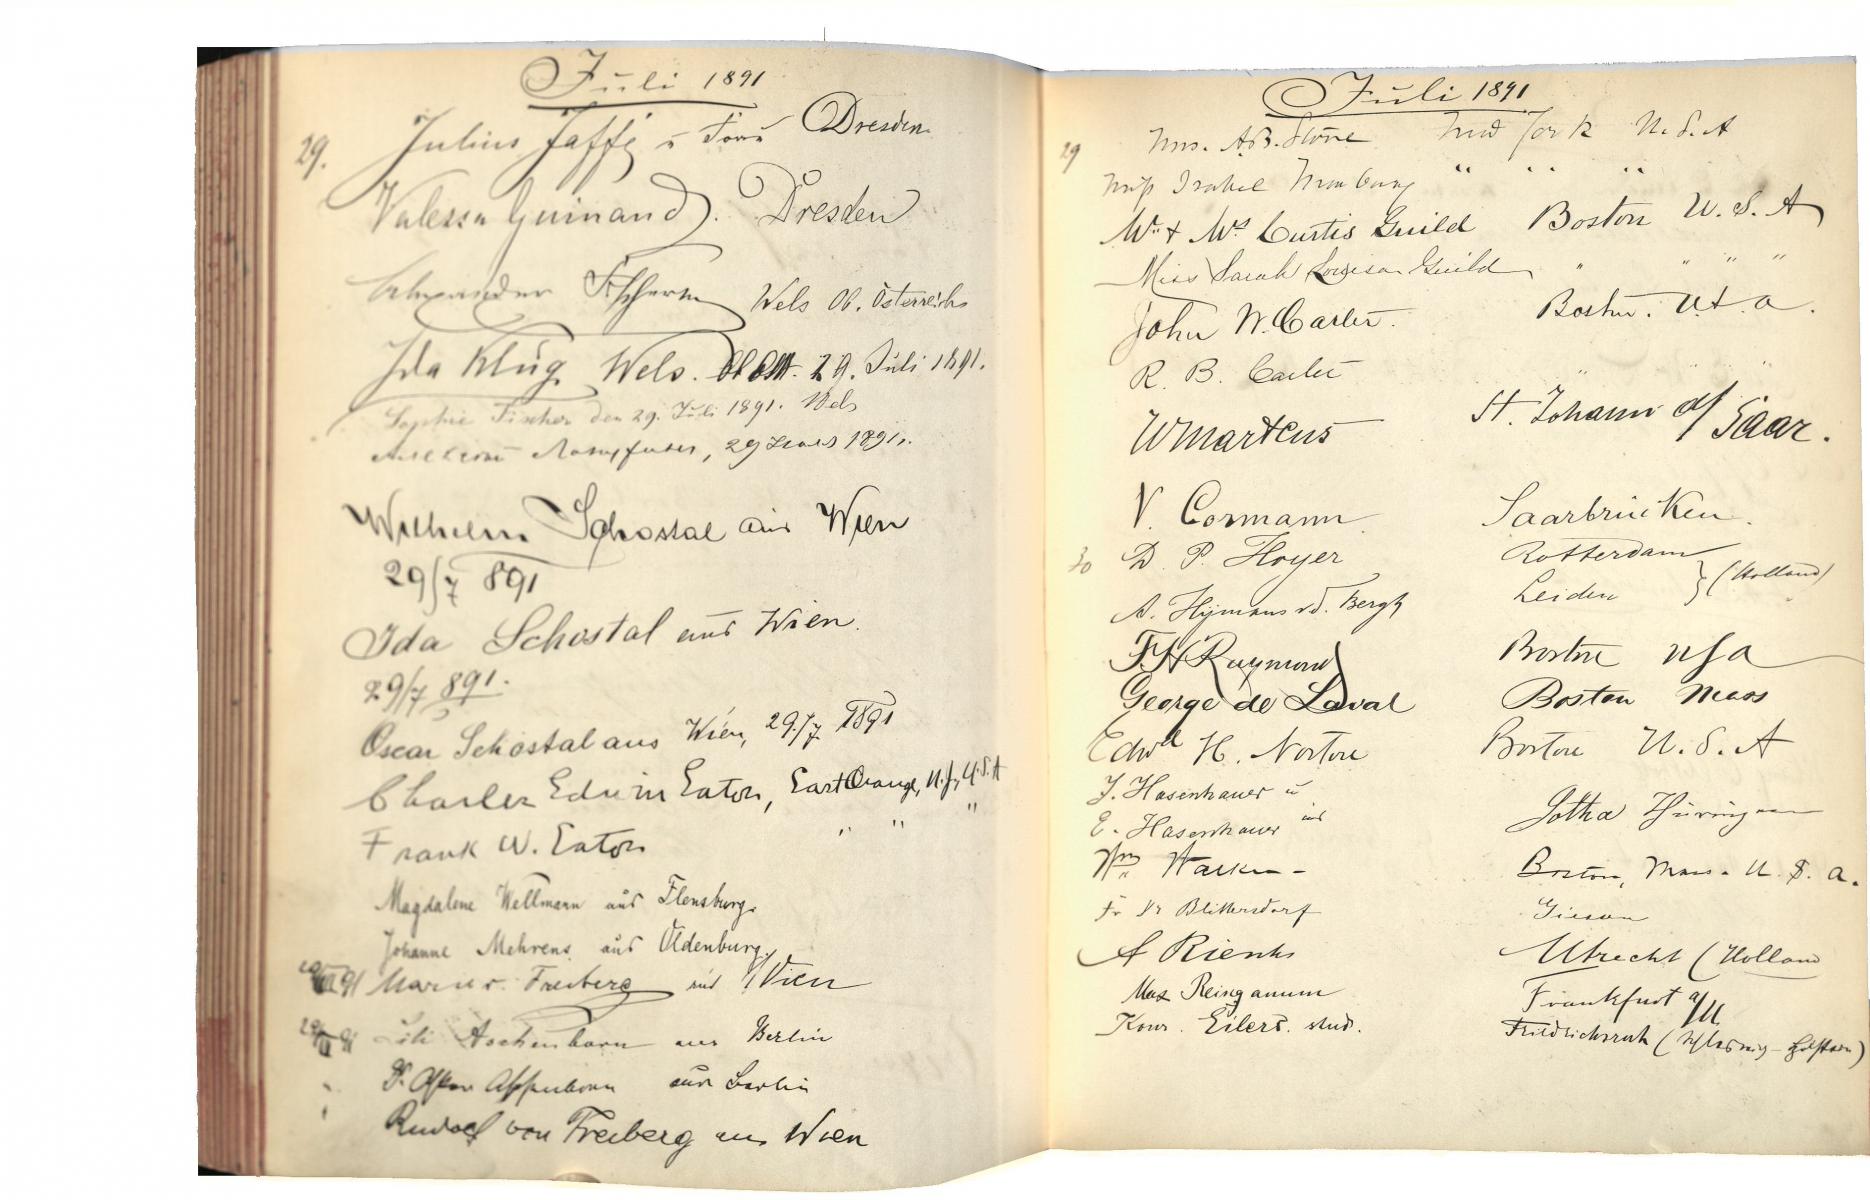 Juli 1891
29. Julius Jaffé u. Frau Dresden
Valeska Guinand. Dresden
Wels Ob. Österreich
Ida Klug. Wels. 29. Juli 1891.
Sophie Fischer den 29. Juli 1891. Wels
29 1891.
Wilhelm Schostal aus Wien
29/7 891
Ida Schostal aus Wien.
29/7 891.
Oscar Schostal aus Wien, 29./7. 1891
Charles Edwin Eaton, East Orange, N.J., U.S.A
Frank W. Eaton " " "
Magdalene Wellmann aus Flensburg.
Johanne Mehrens aus Oldenburg.
Marie v. Freiberg aus Wien
Lili Aschenborn aus Berlin
Dr. Oskar Aschenborn aus Berlin
Rudolf von Freiberg aus Wien
Juli 1891
29 Mrs. A.B. Stone New York U.S.A
Miss Isabel " " "
Mr. & Mrs Curtis Guild Boston U.S.A
Miss Sarah Louisa Guild " " " "
John W. Carter. Boston. U.S.A.
R. B. Carter " "
W Martens St. Johann a/Saar.
V. Cormann Saarbrücken.
30 D. P. Hoyer Rotterdam
A. Hijmans v.d. Bergh Leiden } (Holland)
F. H Raymond Boston USA
George de Laval Boston Mass
Edwd H. Norton Boston U.S.A
J. Hasenhauer u
E. Hasenhauer aus Gotha Thüringen
Wm Boston, Mass. U.S.A.
Fr Dr Blittersdorf Giessen
A Rienks Utrecht (Holland
Max Reinganum Frankfurt a/M
Konr. Eilers. stud. Friedrichsruh (Schleswig-Holstein)